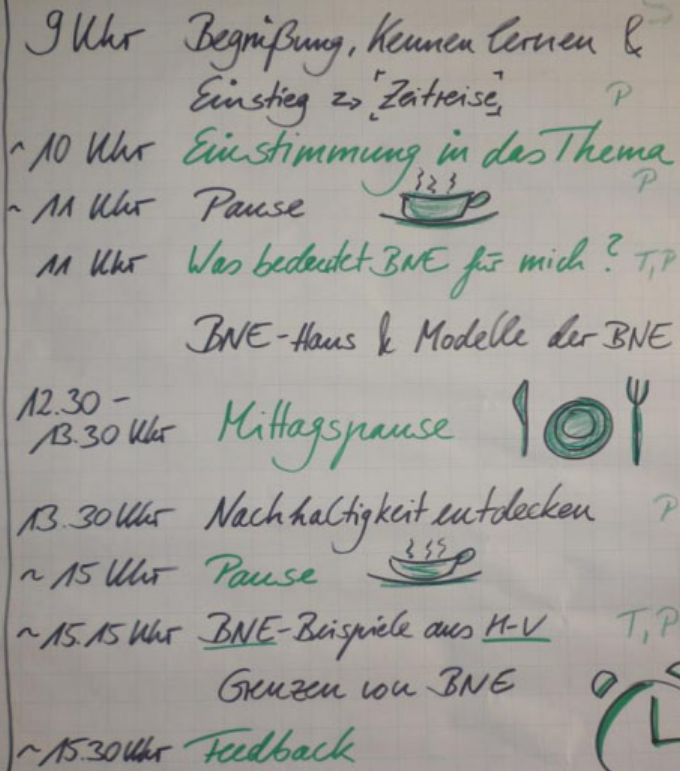 9 Uhr Begrüßung, Kennen lernen &
Einstieg → "Zeitreise"
P
~ 10 Uhr Einstimmung in das Thema
P
~ 11 Uhr Pause
11 Uhr Was bedeutet BNE für mich? T, P
BNE-Haus & Modelle der BNE
12.30 -
13.30 Uhr Mittagspause
13.30 Uhr Nachhaltigkeit entdecken P
~ 15 Uhr Pause
~ 15.15 Uhr BNE-Beispiele aus M-V T, P
Grenzen von BNE
~ 15.30 Uhr Feedback